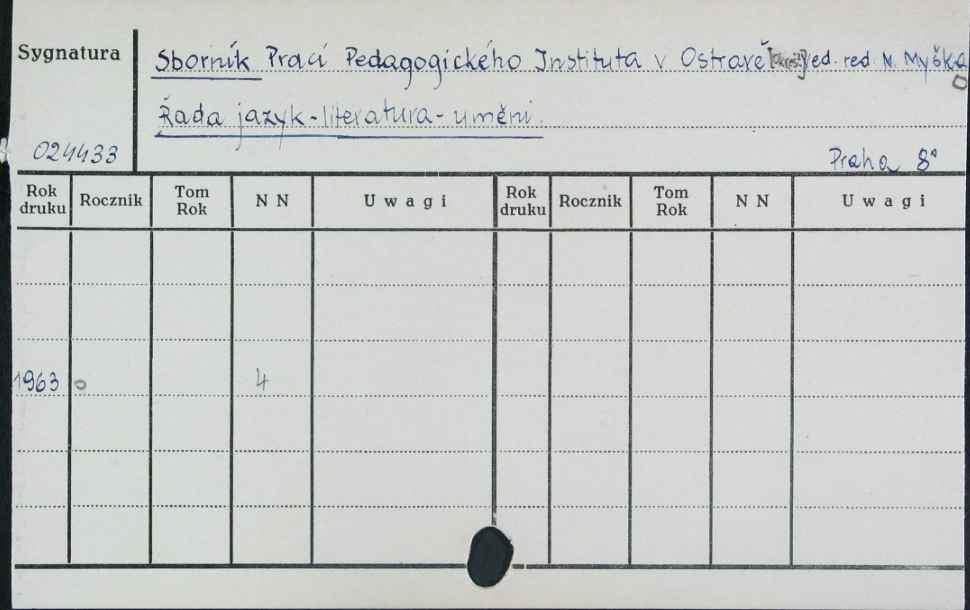 Sygnatura
Sborník Prací Pedagogického Instituta v Ostravě Ved. red. M. Myška
Řada jazyk-literatura-umění.
024433
Praha 8°
Rok druku Rocznik Tom Rok NN Uwagi Rok druku Rocznik Tom Rok NN Uwagi
1963 4